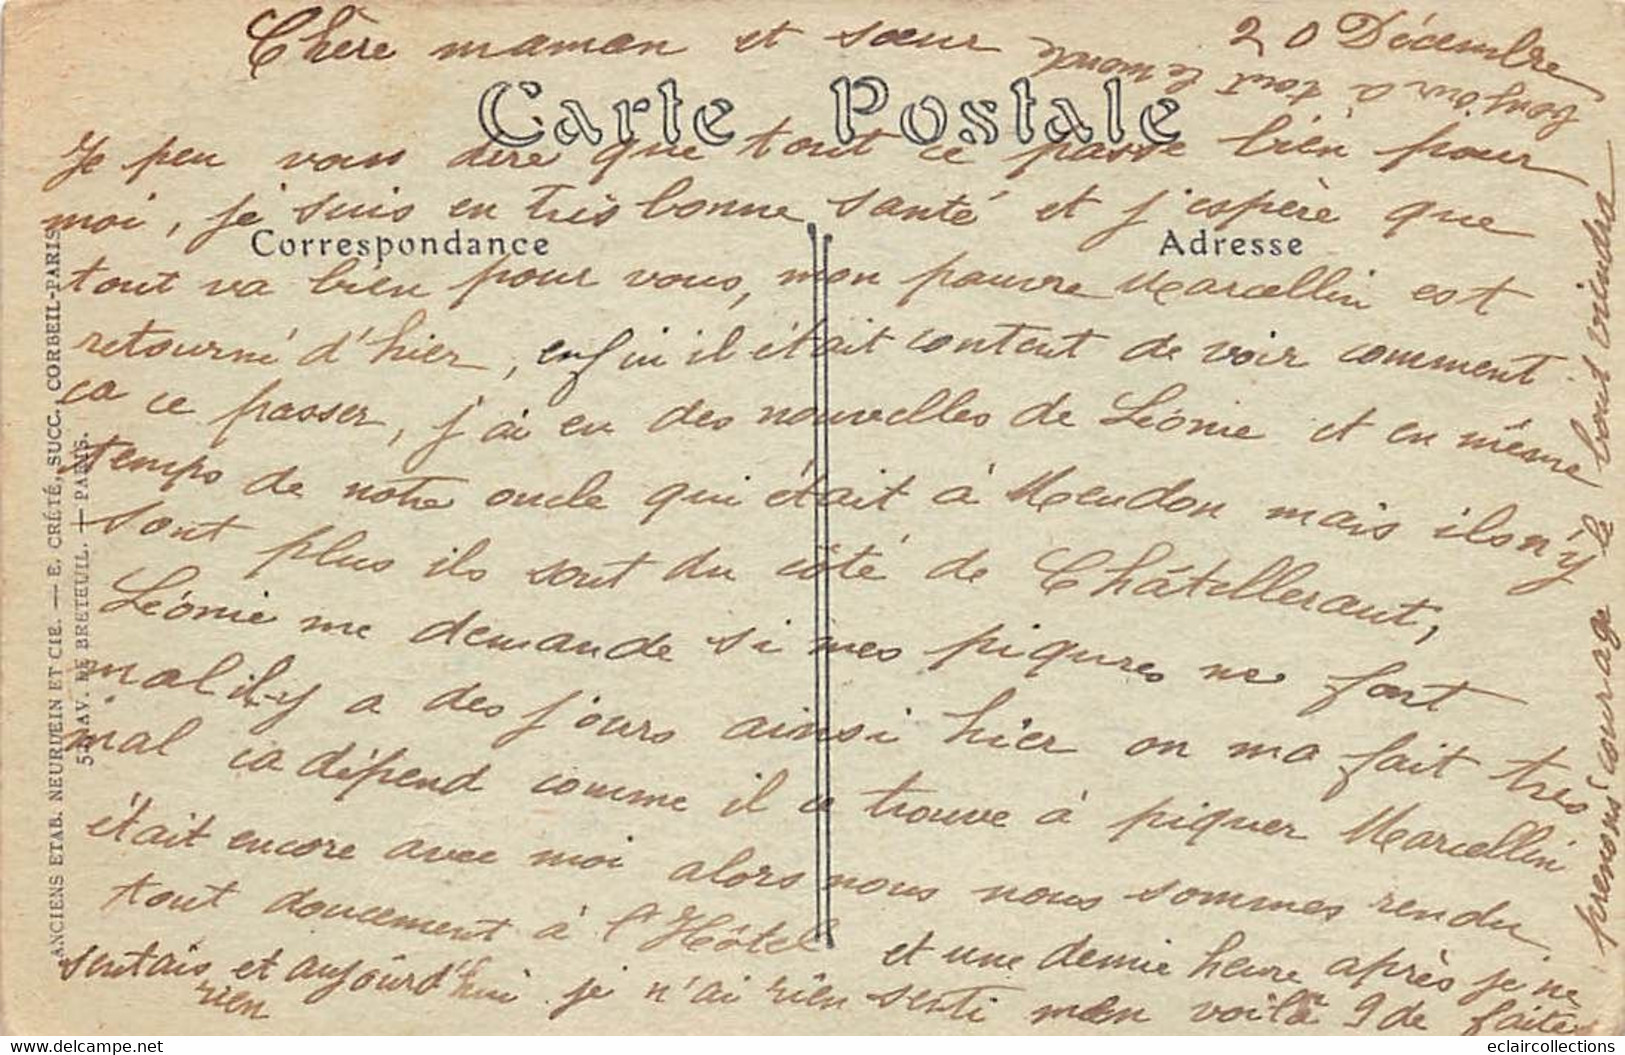 20 Décembre
Chère maman et sœur
bonjour à tout le monde
Carte Postale
Je peu vous dire que tout ce passe bien pour
moi, je suis en très bonne santé et j'espère que
Correspondance
Adresse
tout va bien pour vous, mon pauvre Marcellin est
retourné d'hier, enfin il était content de voir comment
ca ce passer, j'ai eu des nouvelles de Léonie et en même
temps de notre oncle qui était à Meudon mais ils n'y
sont plus ils sont du côté de Châtelleraut,
Léonie me demande si mes piqures ne font
mal il y a des jours ainsi hier on ma fait très
mal ca dépend comme il ce trouve à piquer Marcellin
était encore avec moi alors nous nous sommes rendu
tout doucement à l'Hôtel et une demie heure après je ne
sentais rien et aujourd'hui je n'ai rien senti voilà 9 de faites
prenons courage le bout viendra
ANCIENS ETAB. NEURDEIN ET CIE. — E. CRÉTÉ, SUCC. CORBEIL-PARIS
52, AV. DE BRETEUIL. — PARIS.
eclaircollections
www.delcampe.net